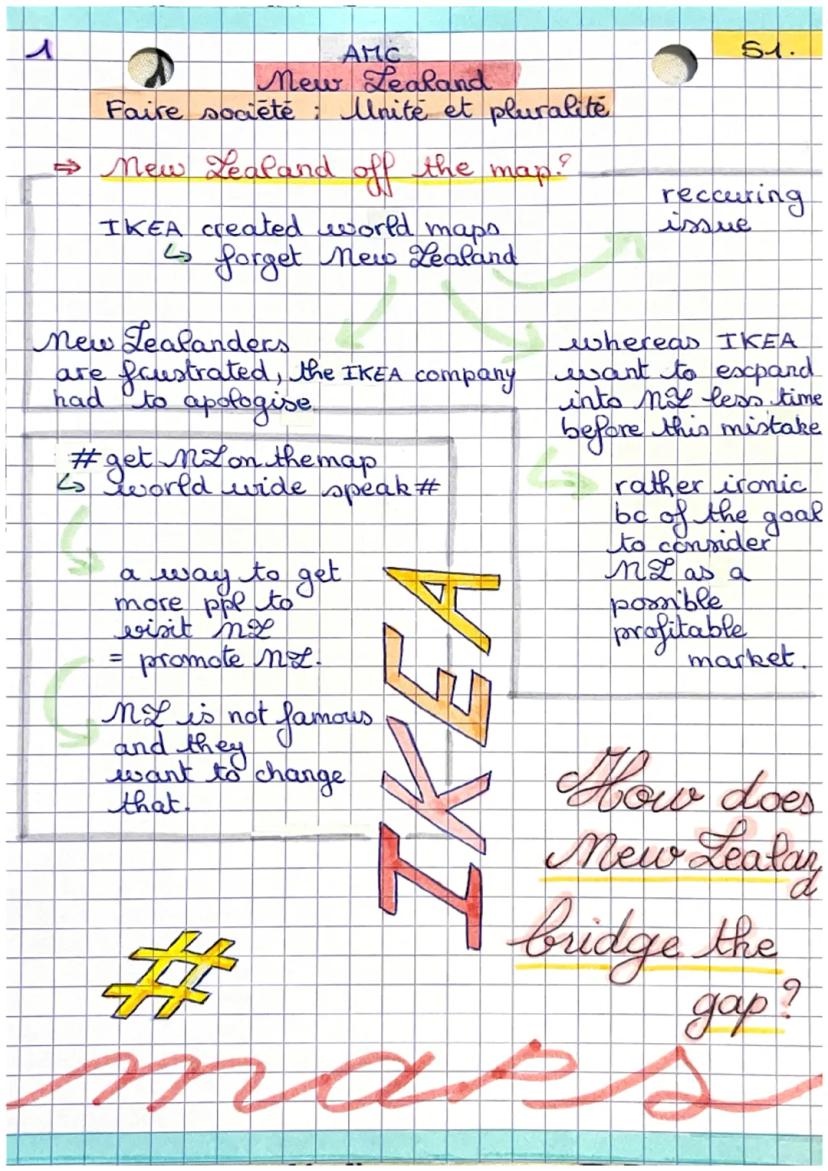 1
AMC
S1.
New Zealand
Faire société : Unité et pluralité
⇒ New Zealand off the map?
reccuring
issue
IKEA created world maps
↳ forget New Zealand
New Zealanders
are frustrated, the IKEA company
had to apologise.
whereas IKEA
want to expand
into NZ less time
before this mistake
↳ rather ironic
bc of the goal
to consider
NZ as a
possible
profitable
market.
#getNZonthemap
↳ world wide speak#
a way to get
more ppl to
visit NZ
= promote NZ.
NZ is not famous
and they
want to change
that.
IKEA
How does
New Zealand
bridge the
gap?
#
maps